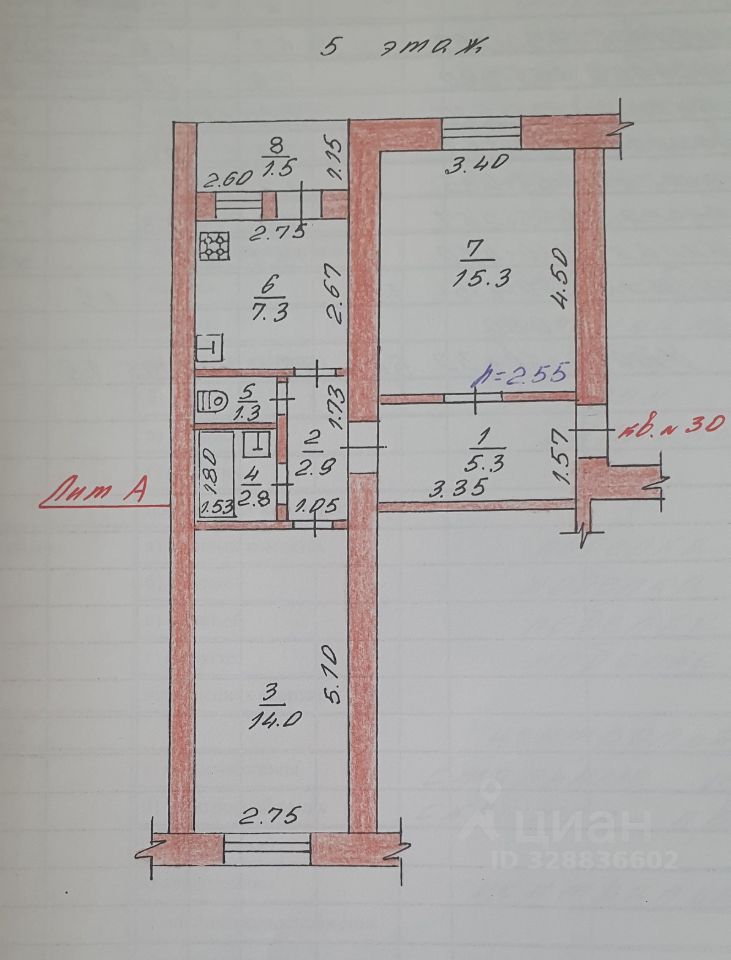 5 этаж
8
1.5
1.15
2.60
2.75
3.40
7
15.3
4.50
6
7.3
2.67
h=2.55
5
1.3
1.73
2
2.9
1
5.3
1.57
кв. № 30
3.35
4
2.8
1.80
1.53
1.05
Лит А
3
14.0
5.10
2.75
циан
ID 328836602